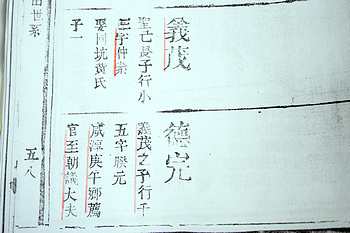 義茂
聖己長子行小
三字仲崇
娶同坑黄氏
子一
德完
義茂之子行千
五字勝元
咸淳庚午鄉薦
官至朝議大夫
世系
五八